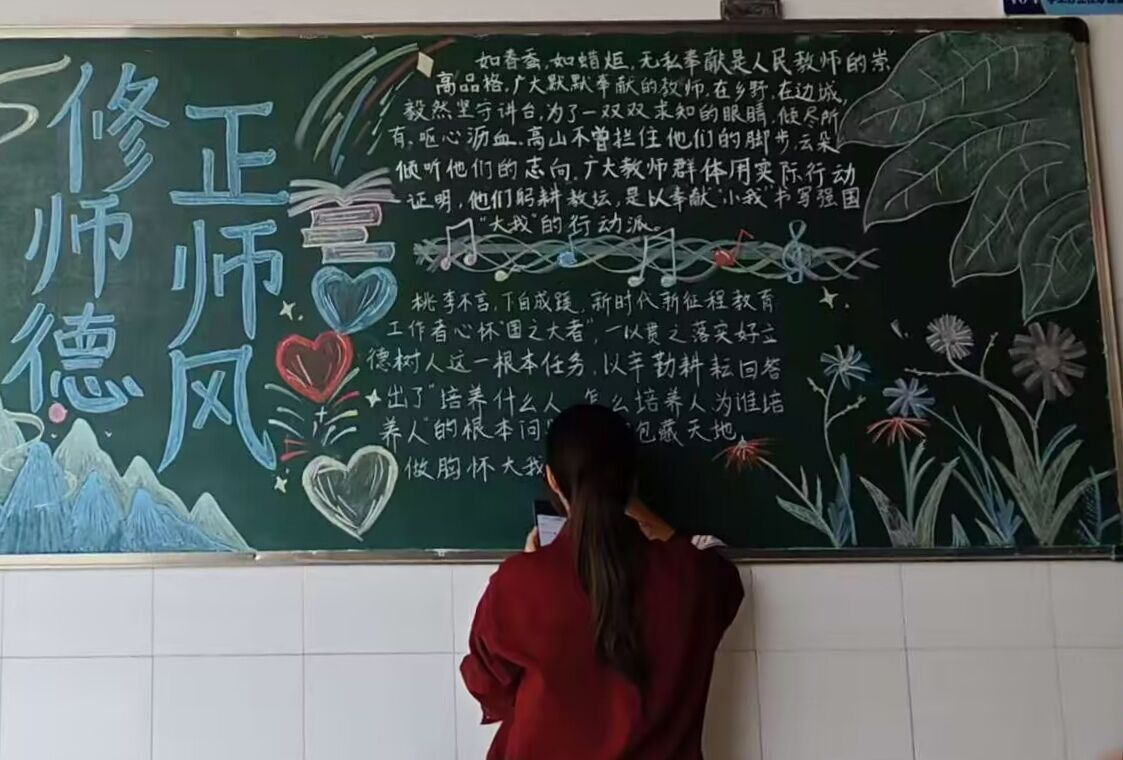 修师德
正师风
如春蚕,如蜡炬,无私奉献是人民教师的崇
高品格,广大默默奉献的教师,在乡野,在边城,
毅然坚守讲台,为了一双双求知的眼睛,倾尽所
有,呕心沥血,高山不曾拦住他们的脚步,云朵
倾听他们的志向,广大教师群体用实际行动
证明,他们躬耕教坛,是以奉献"小我"书写强国
"大我"的行动派。
桃李不言,下自成蹊,新时代新征程教育
工作者心怀"国之大者",一以贯之落实好立
德树人这一根本任务,以辛勤耕耘回答
出了"培养什么人,怎么培养人为谁培
养人"的根本问 包藏天地,
做胸怀大我